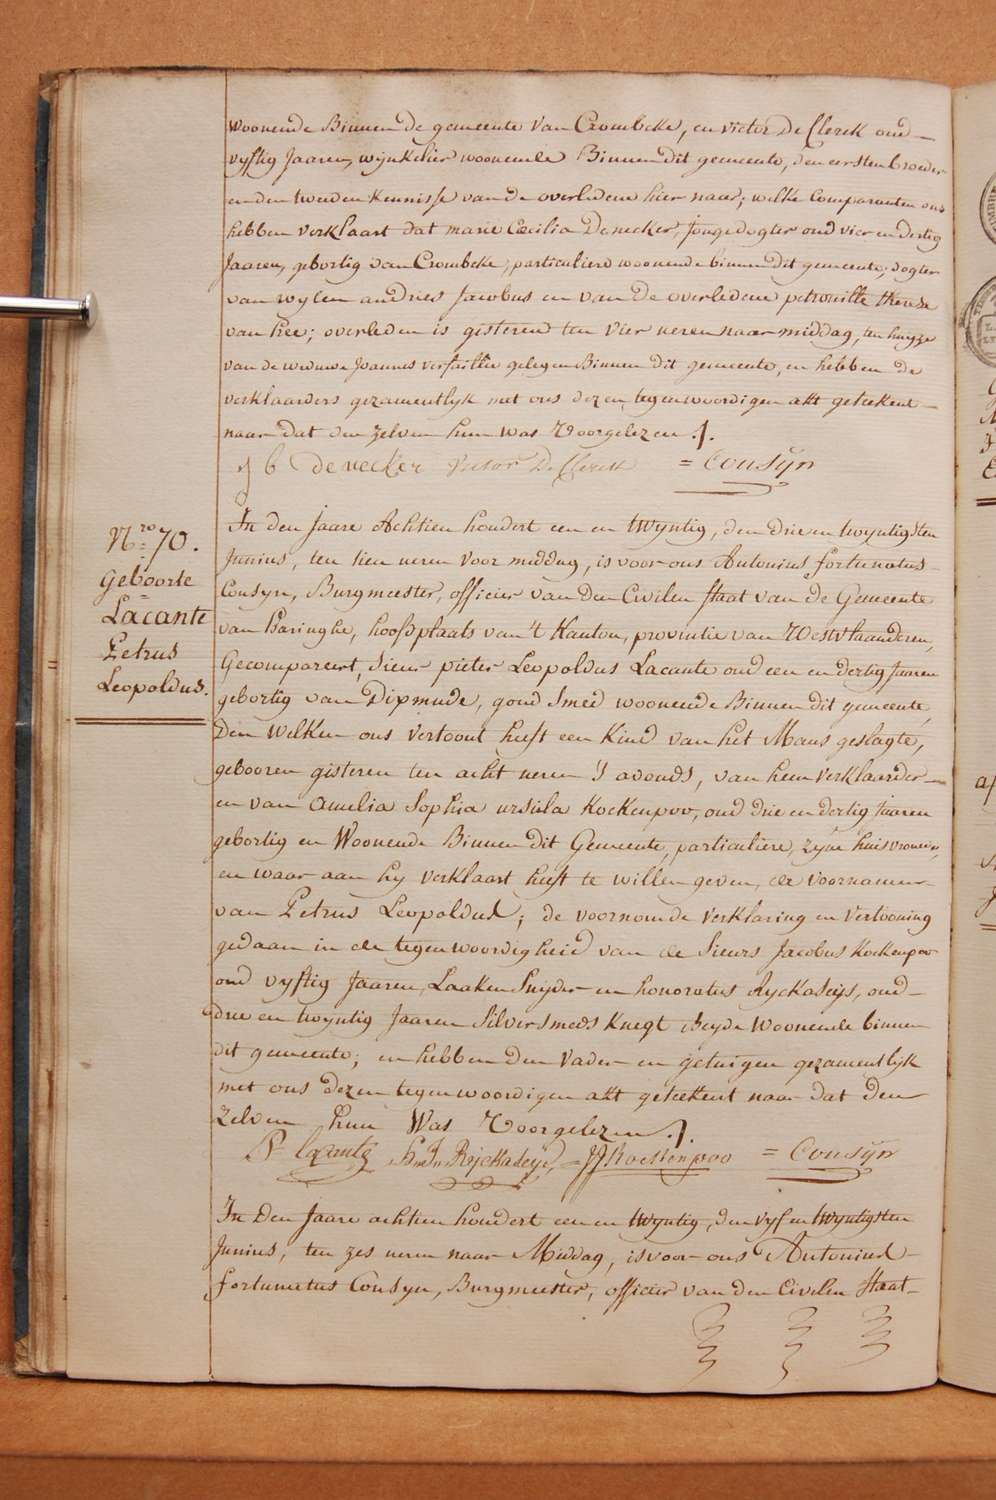 woonende Binnen de gemeente van Crombeke, en victor De Clerck oud
vyftig Jaaren, wynkelier woonende Binnen dit gemeente, den eersten broeder
en den tweeden kennisse van de overledene hier naer; welke Comparanten ons
hebben verklaart dat marie Cæcilia Denecker, Jonge dogter oud vier en dertig
Jaaren, gebortig van Crombeke, particuliere woonende binnen dit gemeente; dogter
van wylen andries Jacobus en van de overledene petronille therese
van hee; overleden is gisteren ten vier ueren naar middag, ten huyze
van de weduwe Joannes verfaillie gelegen Binnen dit gemeente, en hebben de
verklaarders gezamentlyk met ons dezen tegenwoordigen akt geteekent
naar dat den zelven hun was Voorgelezen ./.
j b denecker Victor De Clerck = Cousyn
Nro 70.
Geboorte
Lacante
Petrus
Leopoldus.
In den Jaare Achtien hondert een en twyntig, den drie en twyntigsten
Junius, ten tien ueren voor middag, is voor ons Antonius fortunatus
Cousyn, Burgmeester, officier van den Civilen staat van de Gemeente
van Haringhe, hoofdplaats van 't Kanton, provintie van Westvlaanderen,
Gecompareert, Sieur pieter Leopoldus Lacante oud een en dertig Jaaren
gebortig van Dixmude, goud Smed woonende Binnen dit gemeente,
Den Welken ons vertoont heeft een Kind van het Mans geslagte,
gebooren gisteren ten acht ueren 's avonds, van hem verklaarder
en van Amelia Sophia ursula Kockenpoo, oud drie en dertig Jaaren
gebortig en Woonende Binnen dit Gemeente, particuliere, zyne huisvrouwe,
en waar aan hy verklaart heeft te willen geven, de voornamen
van Petrus Leopoldus; de voornomde verklaring en vertooning
gedaan in de tegenwoordigheid van de Sieurs Jacobus Kockenpoo
oud vyftig Jaaren, Laaken Snyder en honoratus Ryckaseys, oud
drie en twyntig Jaaren Silversmeds Knegt Beyde Woonende binnen
dit gemeente; en hebben den vader en getuigen gezamentlyk
met ons dezen tegenwoordigen akt geteekent naar dat den
zelven hun Was Voorgelezen ./.
P Lacante Ryckaseys = JJ Kockenpoo = Cousyn
In Den Jaare achtien hondert een en twyntig, den vyf en twyntigsten
Junius, ten zes ueren naar Middag, is voor ons Antonius
fortunatus Cousyn, Burgmeester, officier van den Civilen Staat